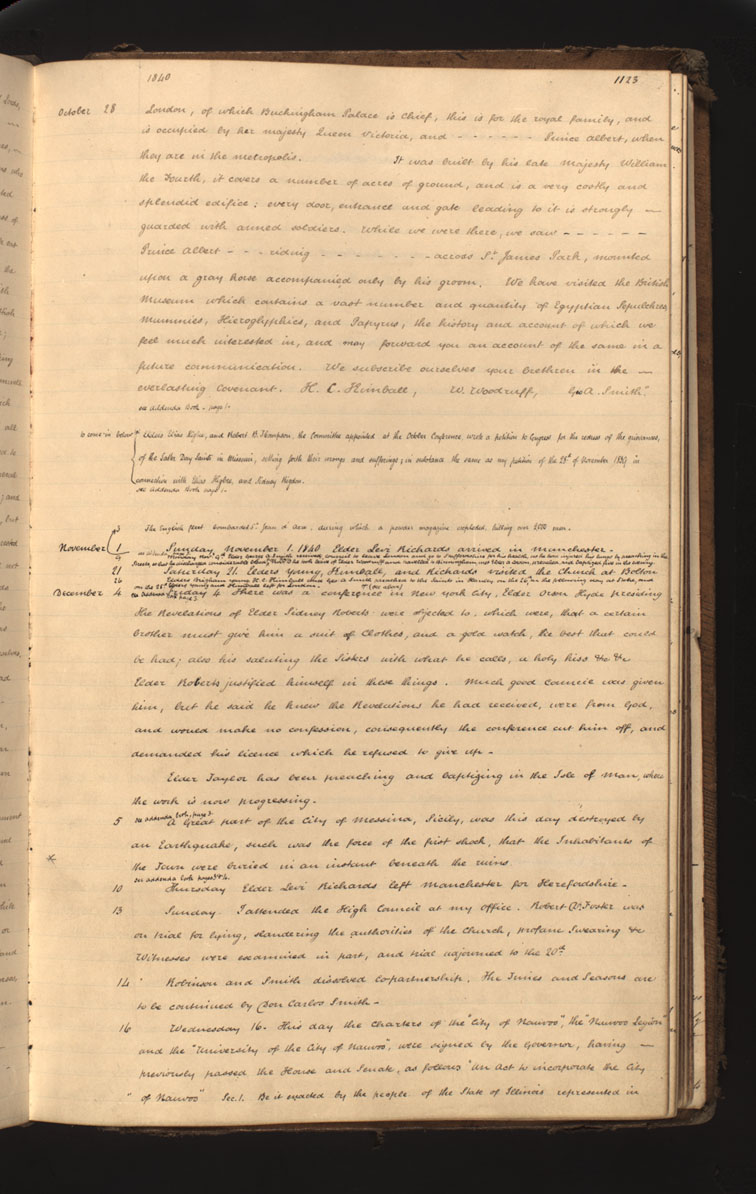 1840
1123
October 28 London, of which Buckingham Palace is chief, this is for the royal family, and
is occupied by her majesty Queen Victoria, and - - - - - - Prince Albert, when
they are in the metropolis. It was built by his late majesty William
the Fourth, it covers a number of acres of ground, and is a very costly and
splendid edifice; every door, entrance and gate leading to it is strongly —
guarded with armed soldiers. While we were there, we saw - - - - - -
Prince Albert - - - riding - - - - - - - - across St. James Park, mounted
upon a gray horse accompanied only by his groom. We have visited the British
Museum which contains a vast number and quantity of Egyptian Sepulchres
Mummies, Hieroglyphics, and Papyrus, the history and account of which we
feel much interested in, and may forward you an account of the same in a
future communication. We subscribe ourselves your Brethren in the —
everlasting Covenant. H. C. Kimball, W. Woodruff, Geo A. Smith."
see Addenda Book - page 1.
to come in below * Elders Elias Higbee, and Robert B. Thompson, the Committee appointed at the October Conference, wrote a petition to Congress for the redress of the grievances,
of the Latter Day Saints in Missouri, setting forth their wrongs and sufferings; in substance the same as my petition of the 28th of November 1839, in
connection with Elias Higbee, and Sidney Rigdon.
see Addenda Book page 1.
3 The English fleet bombarded St. Jean d'Acre, during which a powder magazine exploded, killing over 2000 men.
November 1 Sunday, November 1. 1840 Elder Levi Richards arrived in Manchester.
21 Saturday 21. Elders Young, Kimball, and Richards visited the Church at Bolton
December 4 Friday 4. There was a conference in New York City, Elder Orson Hyde presiding
The Revelations of Elder Sidney Roberts were objected to, which were, that a certain
brother must give him a suit of Clothes, and a gold watch, the best that could
be had; also his saluting the Sisters with what he calls, a holy kiss &c &c
Elder Roberts justified himself in these things. Much good Council was given
him, but he said he knew the Revelations he had received, were from God,
and would make no confession, consequently the conference cut him off, and
demanded his licence which he refused to give up -
Elder Taylor has been preaching and baptizing in the Isle of Man, where
the work is now progressing.
see addenda book, page 3
5 A Great part of the City of Messina, Sicily, was this day destroyed by
an Earthquake, such was the force of the first shock, that the Inhabitants of
* the Town were buried in an instant beneath the ruins.
see addenda book pages 3 & 4.
10 Thursday Elder Levi Richards left Manchester for Herefordshire -
13 Sunday. I attended the High Council at my office. Robert D. Foster was
on trial for lying, slandering the authorities of the Church, profane Swearing &c
Witnesses were examined in part, and trial adjourned to the 20th
14 Robinson and Smith dissolved Co-partnership. The Times and Seasons are
to be continued by Don Carlos Smith -
16 Wednesday 16. This day the Charters of the "City of Nauvoo", the "Nauvoo Legion"
and the "University of the City of Nauvoo", were signed by the Governor, having —
previously passed the House and Senate, as follows "An Act to incorporate the City
" of Nauvoo" Sec. 1. Be it enacted by the people of the State of Illinois represented in